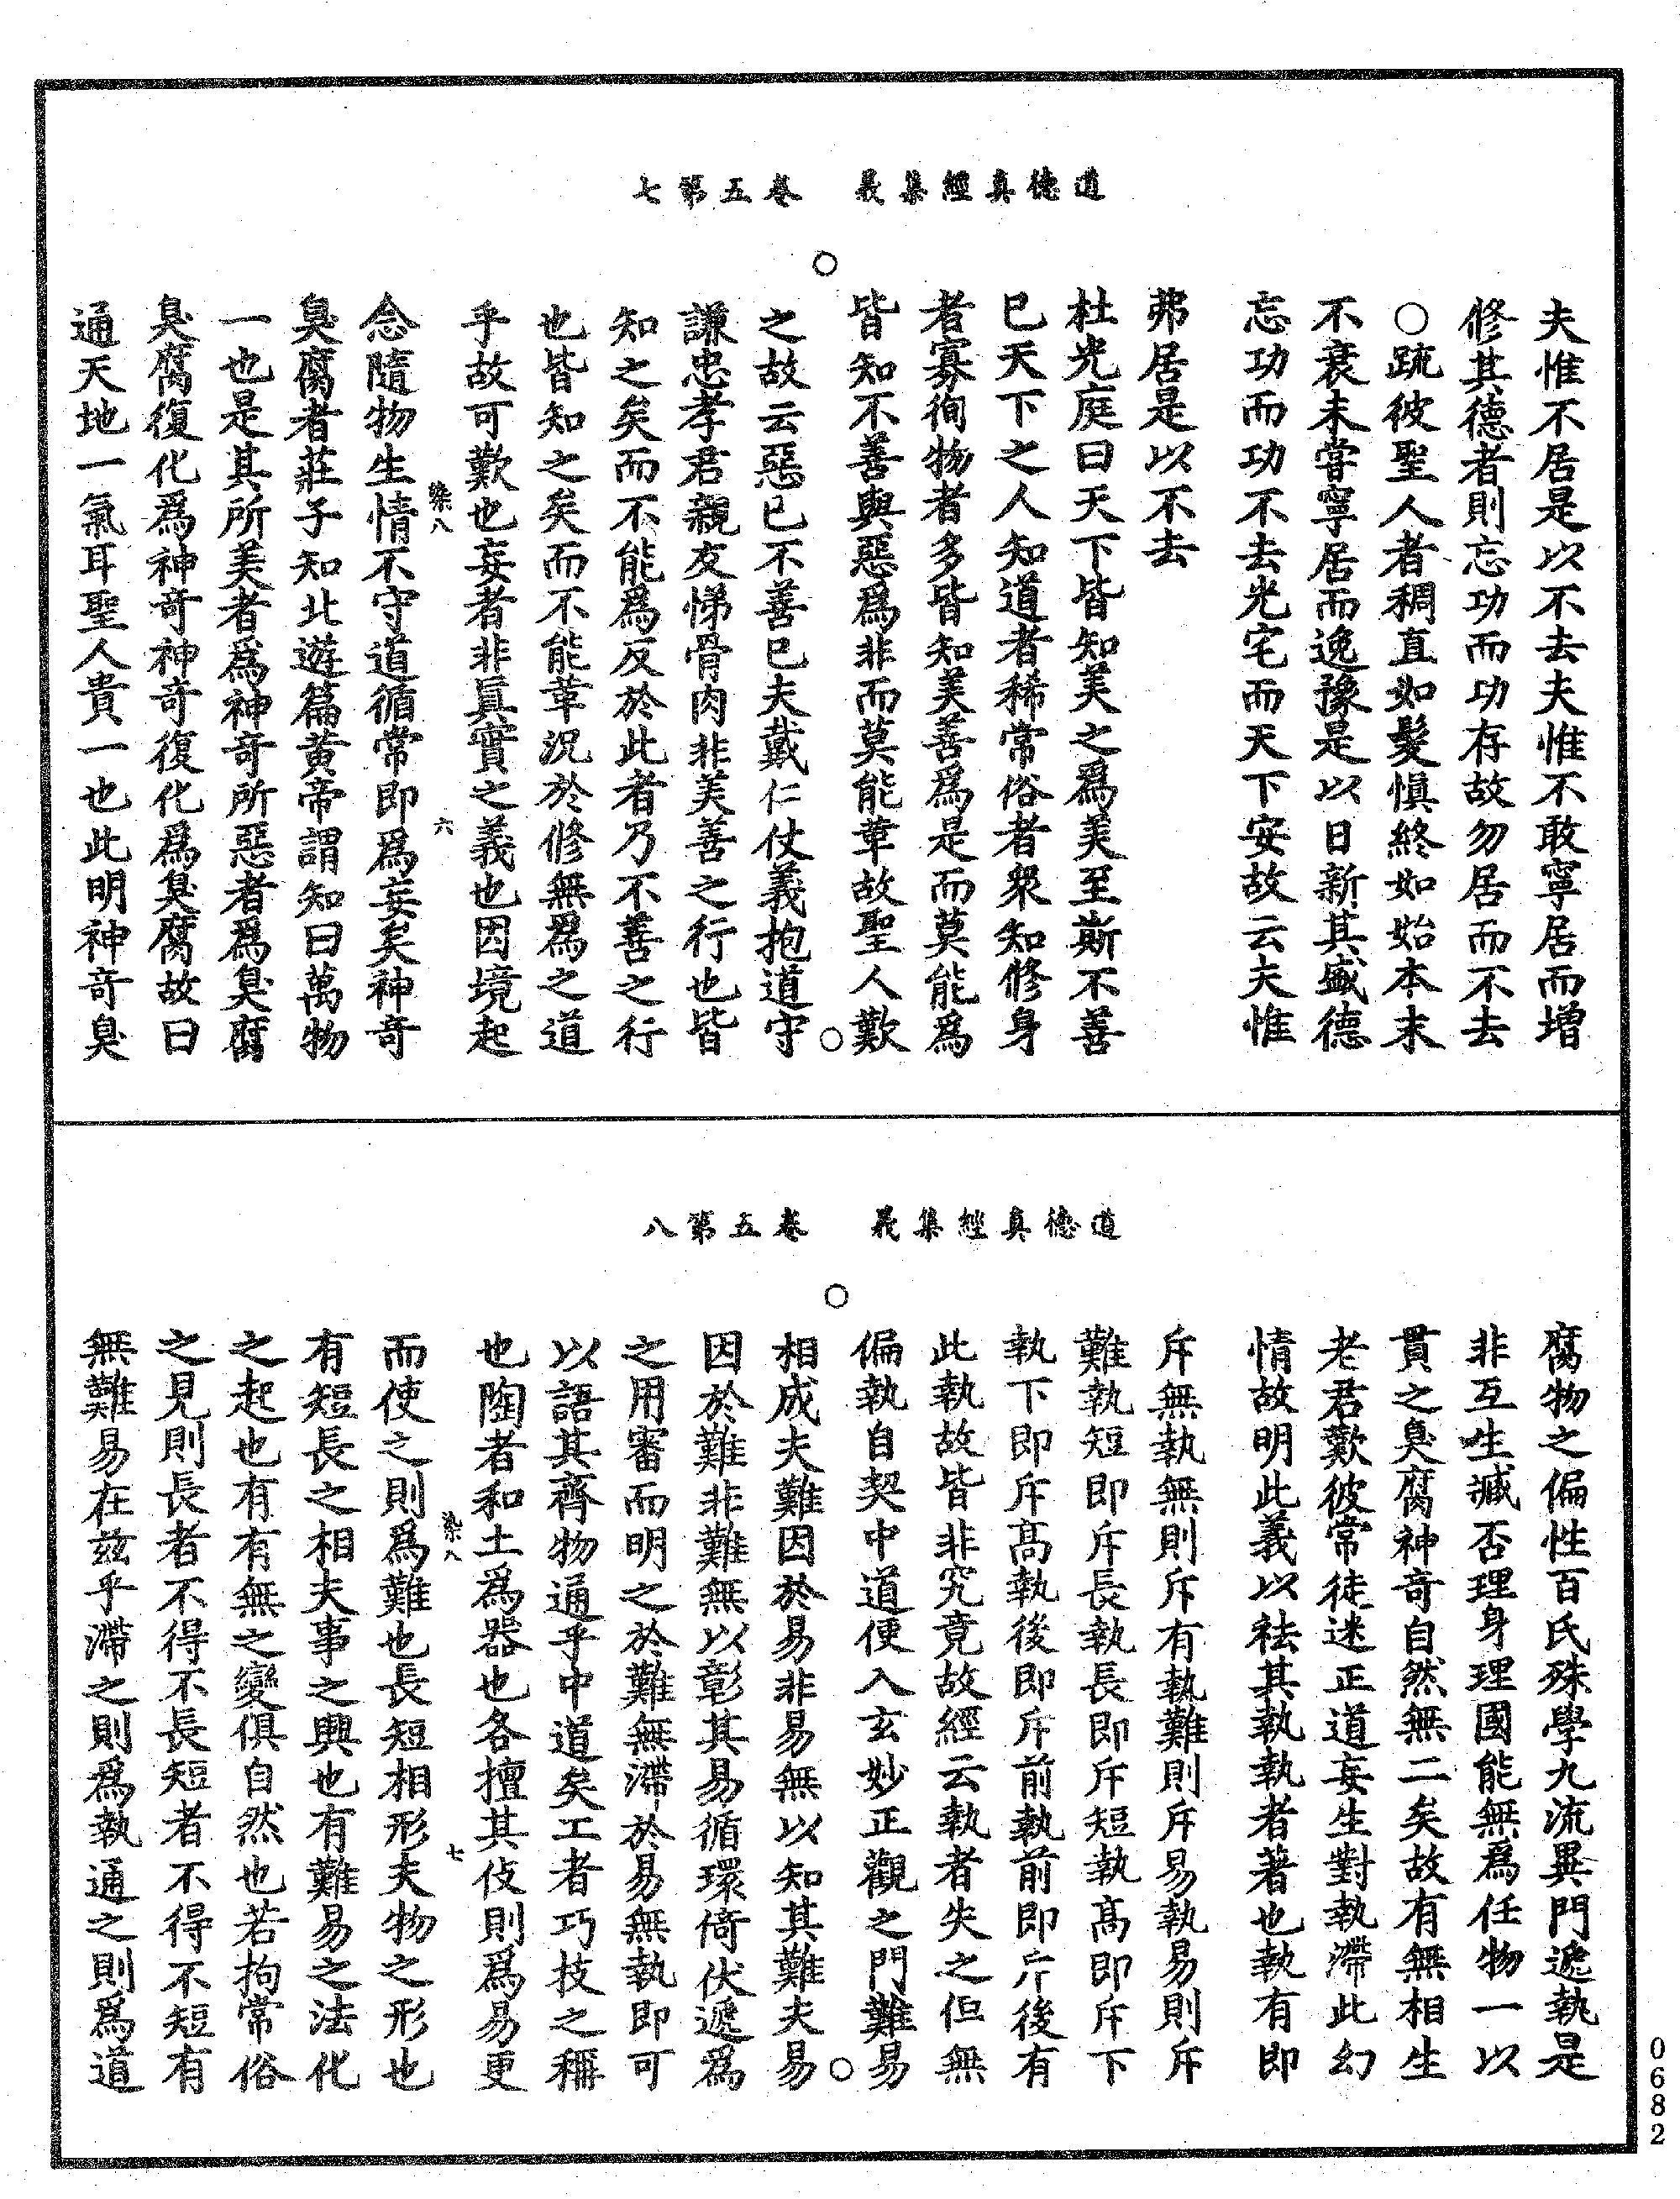 道德真經集義　卷五第七
夫惟不居是以不去夫惟不敢寧居而增
修其德者則忘功而功存故勿居而不去
○疏彼聖人者稠直如髮慎終如始本末
不衰未嘗寧居而逸豫是以日新其盛德
忘功而功不去光宅而天下安故云夫惟
弗居是以不去
杜光庭曰天下皆知美之爲美至斯不善
已天下之人知道者稀常俗者衆知修身
者寡徇物者多皆知美善爲是而莫能爲
皆知不善與惡爲非而莫能革故聖人歎
之故云惡已不善已夫戴仁仗義抱道守
謙忠孝君親友悌骨肉非美善之行也皆
知之矣而不能爲反於此者乃不善之行
也皆知之矣而不能革況於修無爲之道
乎故可歎也妄者非眞實之義也因境起
染八　六
念隨物生情不守道循常即爲妄矣神奇
臭腐者莊子知北遊篇黃帝謂知曰萬物
一也是其所美者爲神奇所惡者爲臭腐
臭腐復化爲神奇神奇復化爲臭腐故曰
通天地一氣耳聖人貴一也此明神奇臭
道德真經集義　卷五第八
腐物之偏性百氏殊學九流異門遞執是
非互生臧否理身理國能無爲任物一以
貫之臭腐神奇自然無二矣故有無相生
老君歎彼常徒迷正道妄生對執滯此幻
情故明此義以祛其執執者著也執有即
斥無執無則斥有執難則斥易執易則斥
難執短即斥長執長即斥短執高即斥下
執下即斥高執後即斥前執前即斥後有
此執故皆非究竟故經云執者失之但無
偏執自契中道便入玄妙正觀之門難易
相成夫難因於易非易無以知其難夫易
因於難非難無以彰其易循環倚伏遞爲
之用審而明之於難無滯於易無執即可
以語其齊物通乎中道矣工者巧技之稱
也陶者和土爲器也各擅其伎則爲易更
染八　七
而使之則爲難也長短相形夫物之形也
有短長之相夫事之興也有難易之法化
之起也有有無之變俱自然也若拘常俗
之見則長者不得不長短者不得不短有
無難易在茲乎滯之則爲執通之則爲道
0682